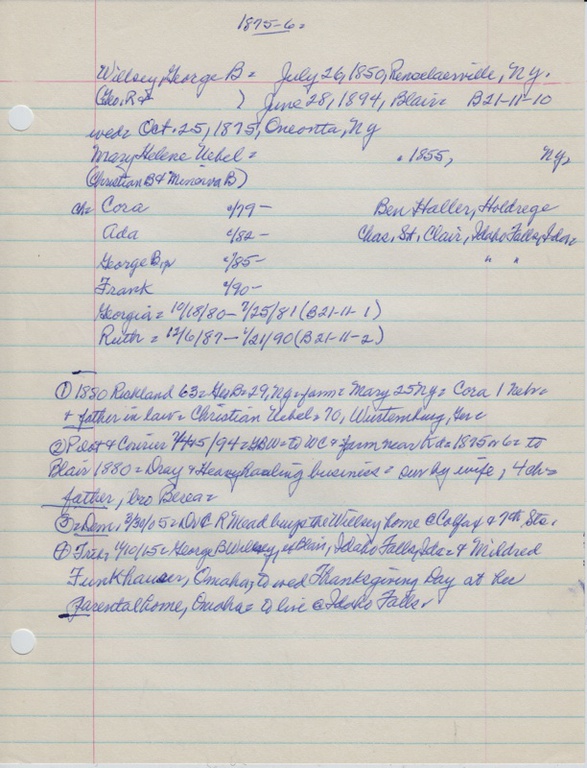 1875-6=
Willsey, George B= July 26, 1850, Rensselaerville, Ny.
(Geo. R+ ) June 28, 1894, Blair= B21-11-10
wed= Oct. 25, 1875, Oneonta, Ny
Mary Helene Uebel= " 1855, Ny,
(Christian B + Minerva B)
ch= Cora c/79- Ben Haller, Holdrege
Ada c/82- Chas. St. Clair, Idaho Falls, Ida=
George B, jr c/85- " "
Frank c/90-
Georgia= 10/18/80- 7/25/81 (B21-11-1)
Ruth= 12/6/87- 1/21/90 (B21-11-2)
① 1880 Richland 63= Geo B= 29, Ny= farm= Mary 25 Ny= Cora 1 Nebr=
+ father in law= Christian Uebel= 70, Wurtemburg, Ger=
② Pilot + Courier /94= GBW= to WC + farm near K d= 1875 or 6= to
Blair 1880= Dray + Heavy Hauling business= surv by wife, 4 ch=
father, bro Berea=
③ = Dem, 3/30/05= Dr C R Mead buys the Willsey home @ Colfax + 7th Sts.
④ Trib, 11/10/15= George B Willsey, ex Blair, Idaho Falls, Ida= + Mildred
Funkhauser, Omaha, to wed Thanksgiving Day at her
parental home, Omaha= to live @ Idaho Falls.